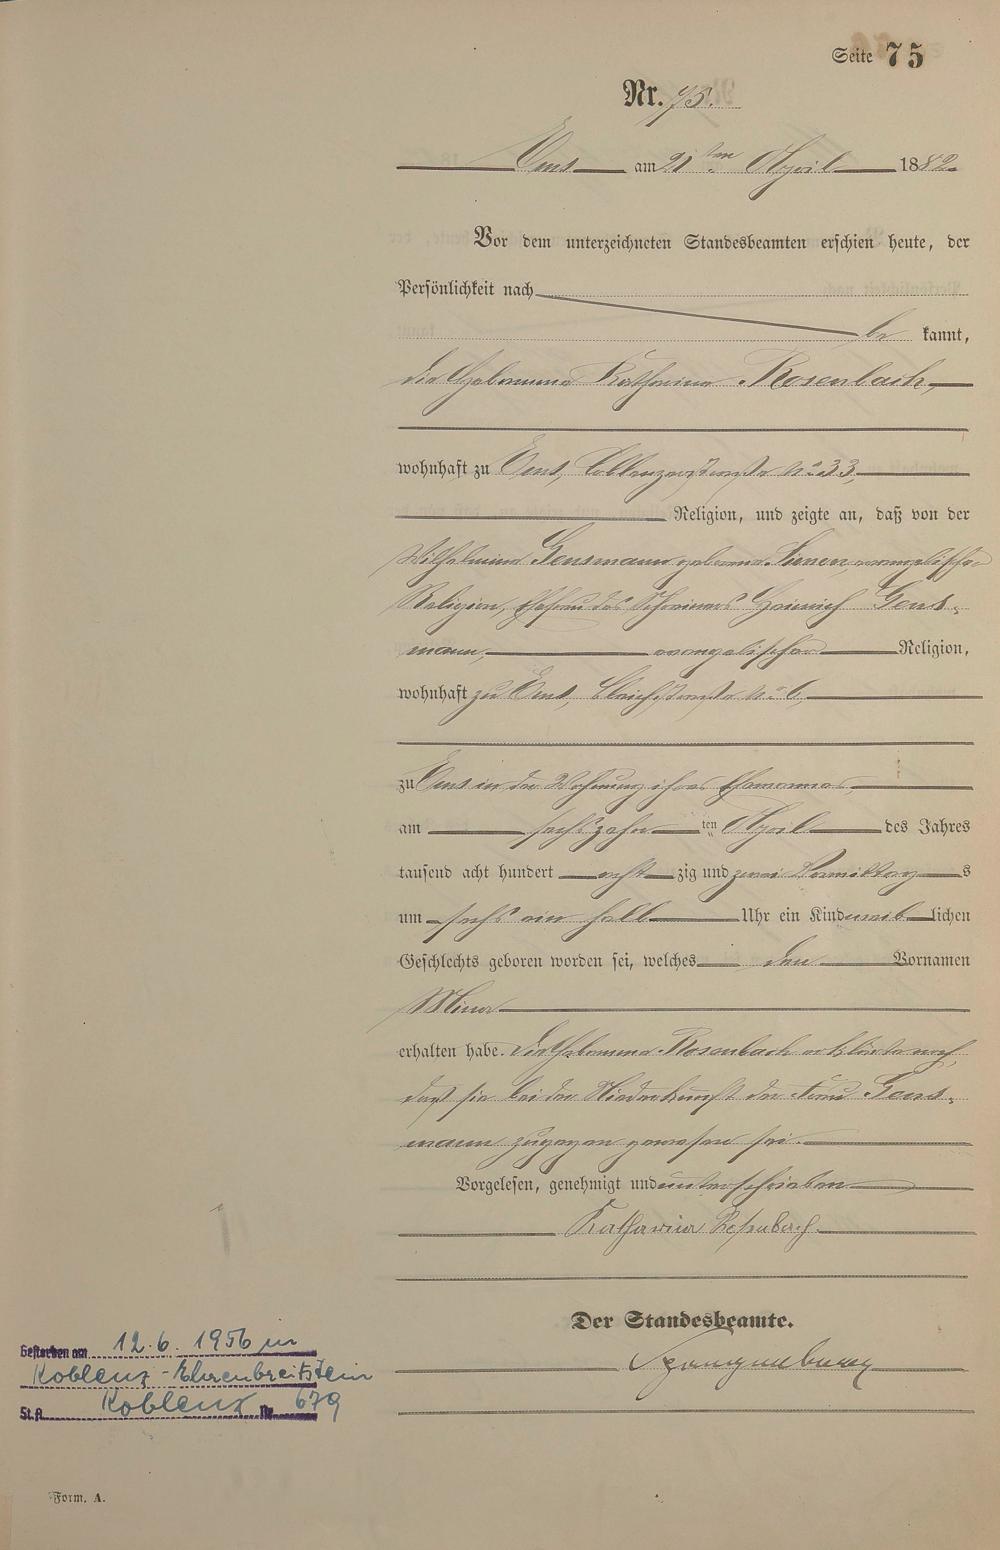 Seite 75
Nr. 75.
Ems am 21 ten April 1882.
Vor dem unterzeichneten Standesbeamten erschien heute, der
Persönlichkeit nach
be kannt,
die Hebamme Katharina Rosenbach,
wohnhaft zu Ems, Coblenzerstraße No 33,
Religion, und zeigte an, daß von der
Wilhelmine Gensmann geborene Simen, evangelischer
Religion, Ehefrau des Schreiners Heinrich Gens-
mann, evangelischer Religion,
wohnhaft zu Ems, Bleichstraße No 6,
zu Ems in der Wohnung ihres Ehemannes,
am sechszehn ten April des Jahres
tausend acht hundert acht zig und zwei Vormittag s
um sechs ein halb Uhr ein Kind weib lichen
Geschlechts geboren worden sei, welches den Vornamen
Mina
erhalten habe. Die Hebamme Rosenbach erklärte noch,
daß sie bei der Niederkunft der Frau Gens-
mann zugegen gewesen sei.
Vorgelesen, genehmigt und unterschrieben
Katharina Rosenbach.
Der Standesbeamte.
Spangenberg
Gestorben am 12.6.1956 in
Koblenz-Ehrenbreitstein
St.A. Koblenz Nr. 679
Form. A.